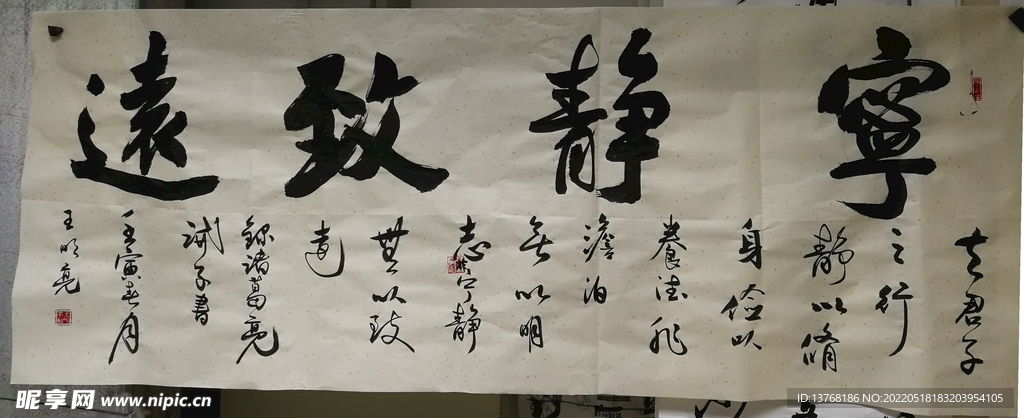 寧靜致遠
夫君子
之行
靜以脩
身儉以
養德非
澹泊
無以明
志寧靜
無以致
遠
錄諸葛亮
誡子書
壬寅春月
王明亮
昵享网 www.nipic.cn
ID:13768186 NO:20220518183203954105